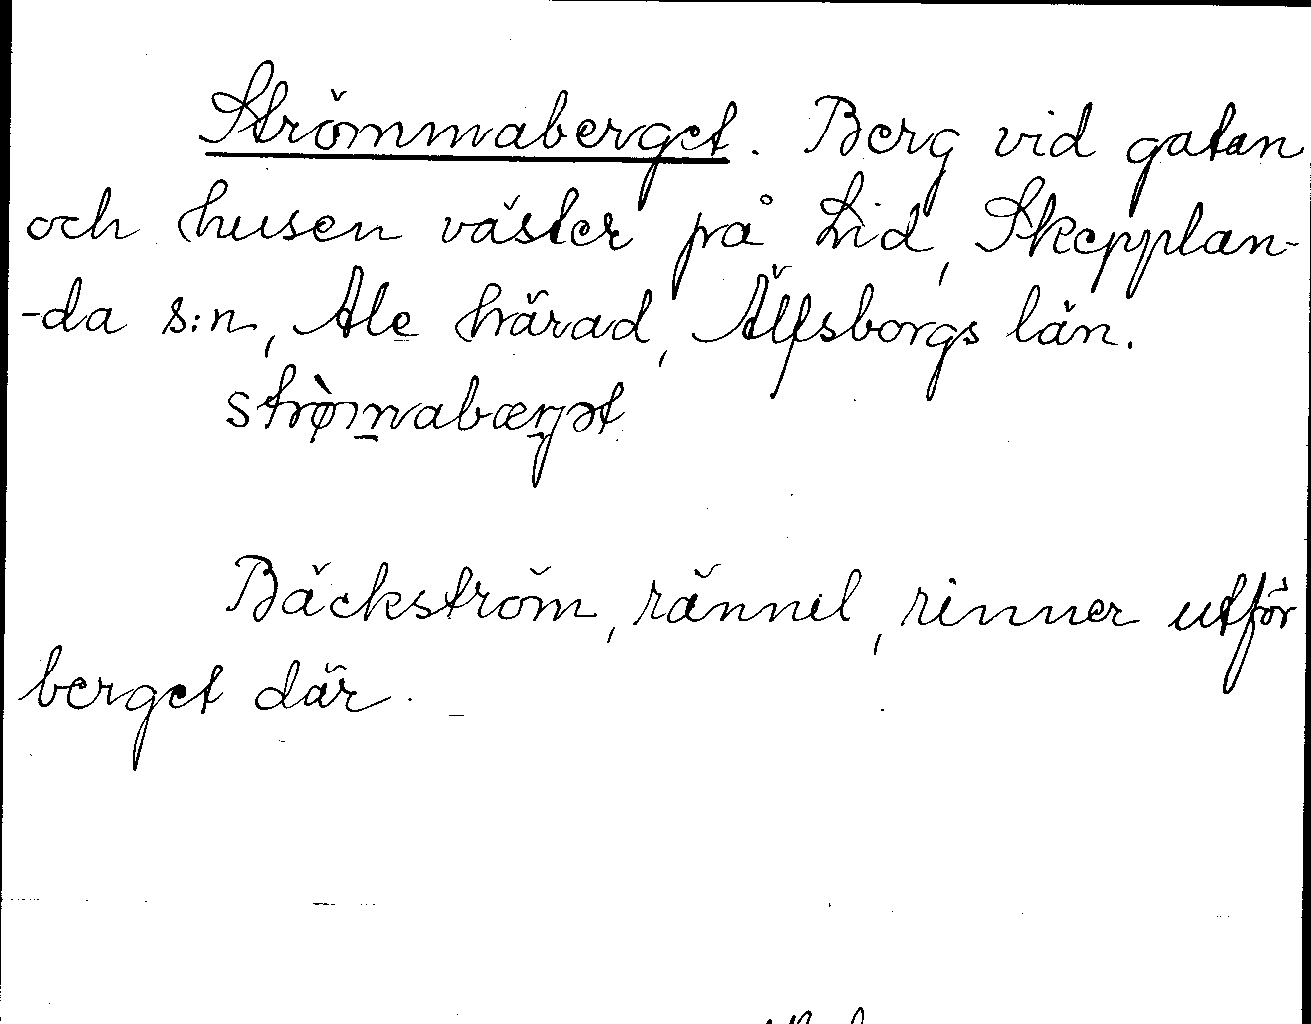 Strömmaberget. Berg vid gatan
och husen väster på Lid, Skepplan-
-da s:n, Ale härad, Älfsborgs län.
strø̀m̲abærgət
Bäckström, rännil, rinner utför
berget där.